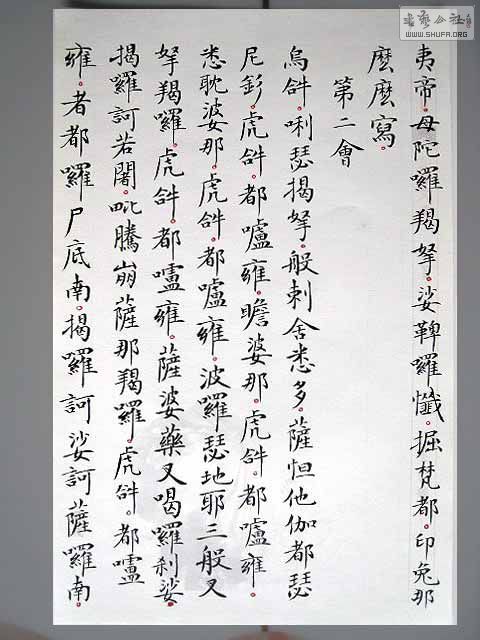 夷帝。母陀囉羯拏。娑鞞囉懺。掘梵都。印兔那
麼麼寫。
第二會
烏𤙖。唎瑟揭拏。般剌舍悉多。薩怛他伽都瑟
尼釤。虎𤙖。都嚧雍。瞻婆那。虎𤙖。都嚧雍。
悉耽婆那。虎𤙖。都嚧雍。波羅瑟地耶三般叉
拏羯囉。虎𤙖。都嚧雍。薩婆藥叉喝囉剎娑。
揭囉訶若闍。毗騰崩薩那羯囉。虎𤙖。都嚧
雍。者都囉尸底南。揭囉訶娑訶薩囉南。
書藝公社
WWW.SHUFA.ORG